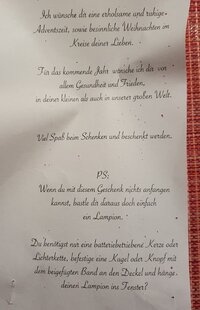 Ich wünsche dir eine erholsame und ruhige
Adventszeit, sowie besinnliche Weihnachten im
Kreise deiner Lieben.
Für das kommende Jahr wünsche ich dir vor
allem Gesundheit und Frieden,
in deiner kleinen als auch in unserer großen Welt.
Viel Spaß beim Schenken und beschenkt werden.
PS:
Wenn du mit diesem Geschenk nichts anfangen
kannst, bastle dir daraus doch einfach
ein Lampion.
Du benötigst nur eine batteriebetriebene Kerze oder
Lichterkette, befestige eine Kugel oder Knopf mit
dem beigefügten Band an den Deckel und hänge
deinen Lampion ins Fenster?